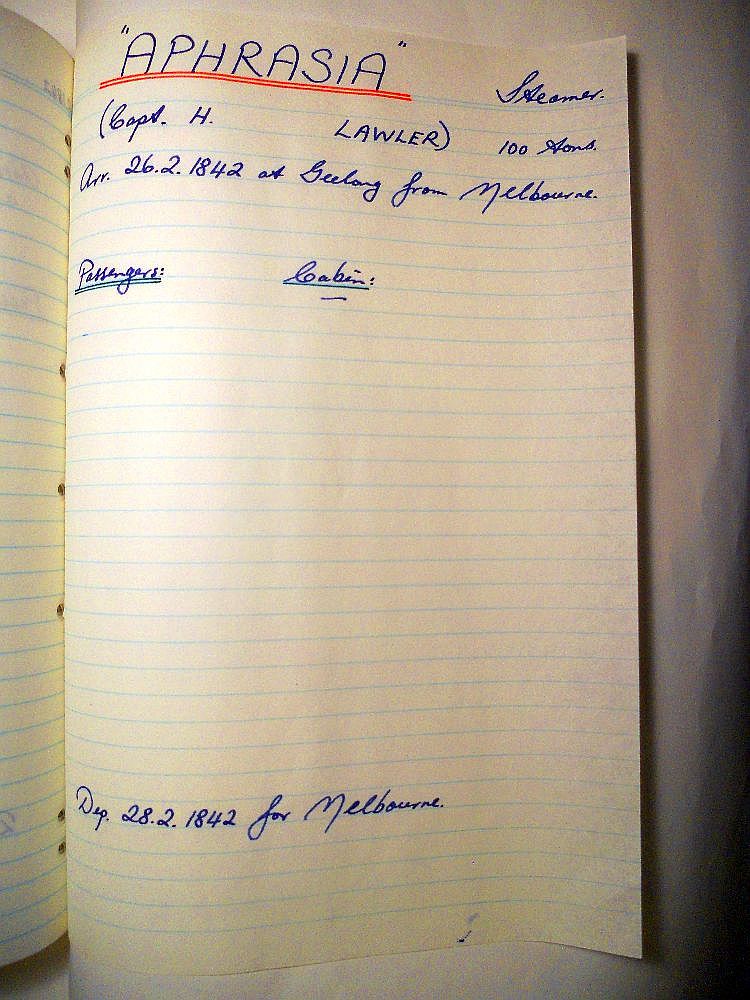 "APHRASIA"
Steamer.
(Capt. H. LAWLER) 100 tons.
Arr. 26.2.1842 at Geelong from Melbourne.
Passengers: Cabin:
—
Dep. 28.2.1842 for Melbourne.